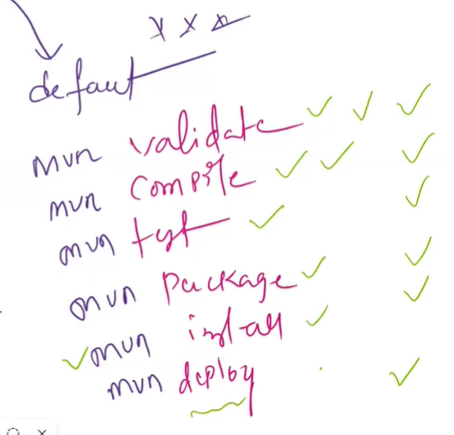 x x x
defaut
mvn validate
mvn compile
mvn tyt
mvn package
mvn install
mvn deploy